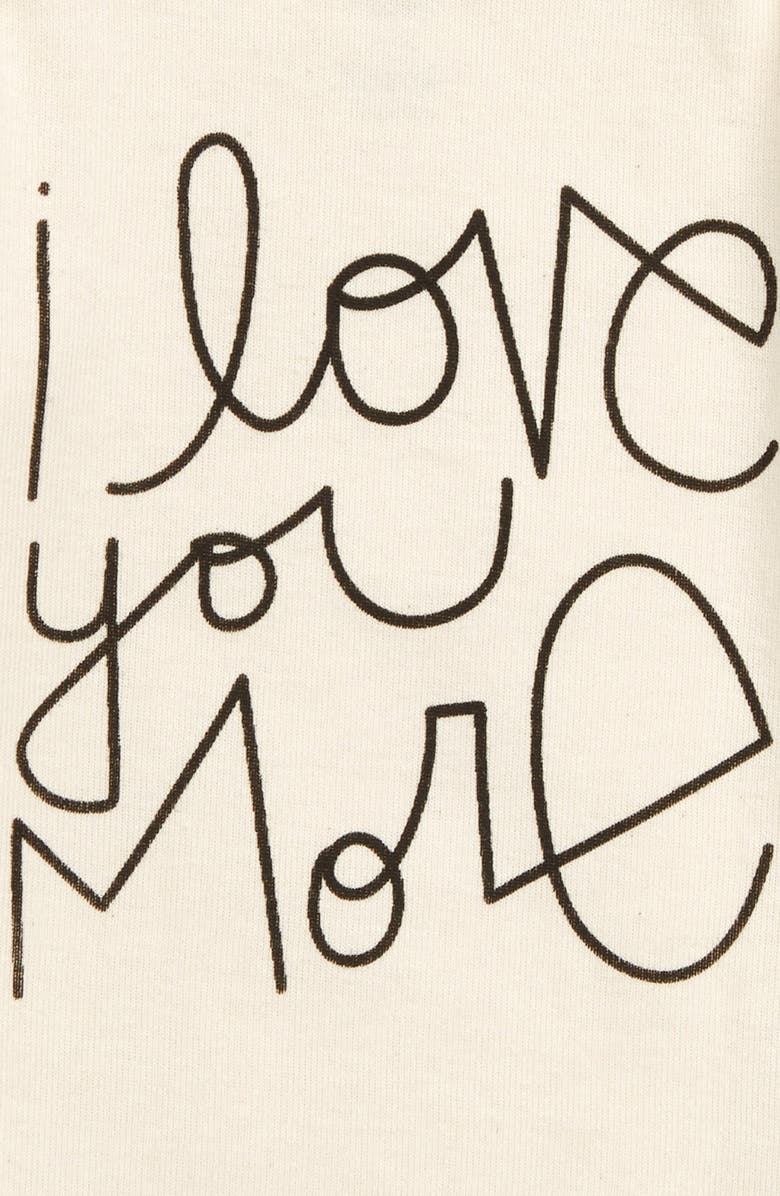 i love
you
More